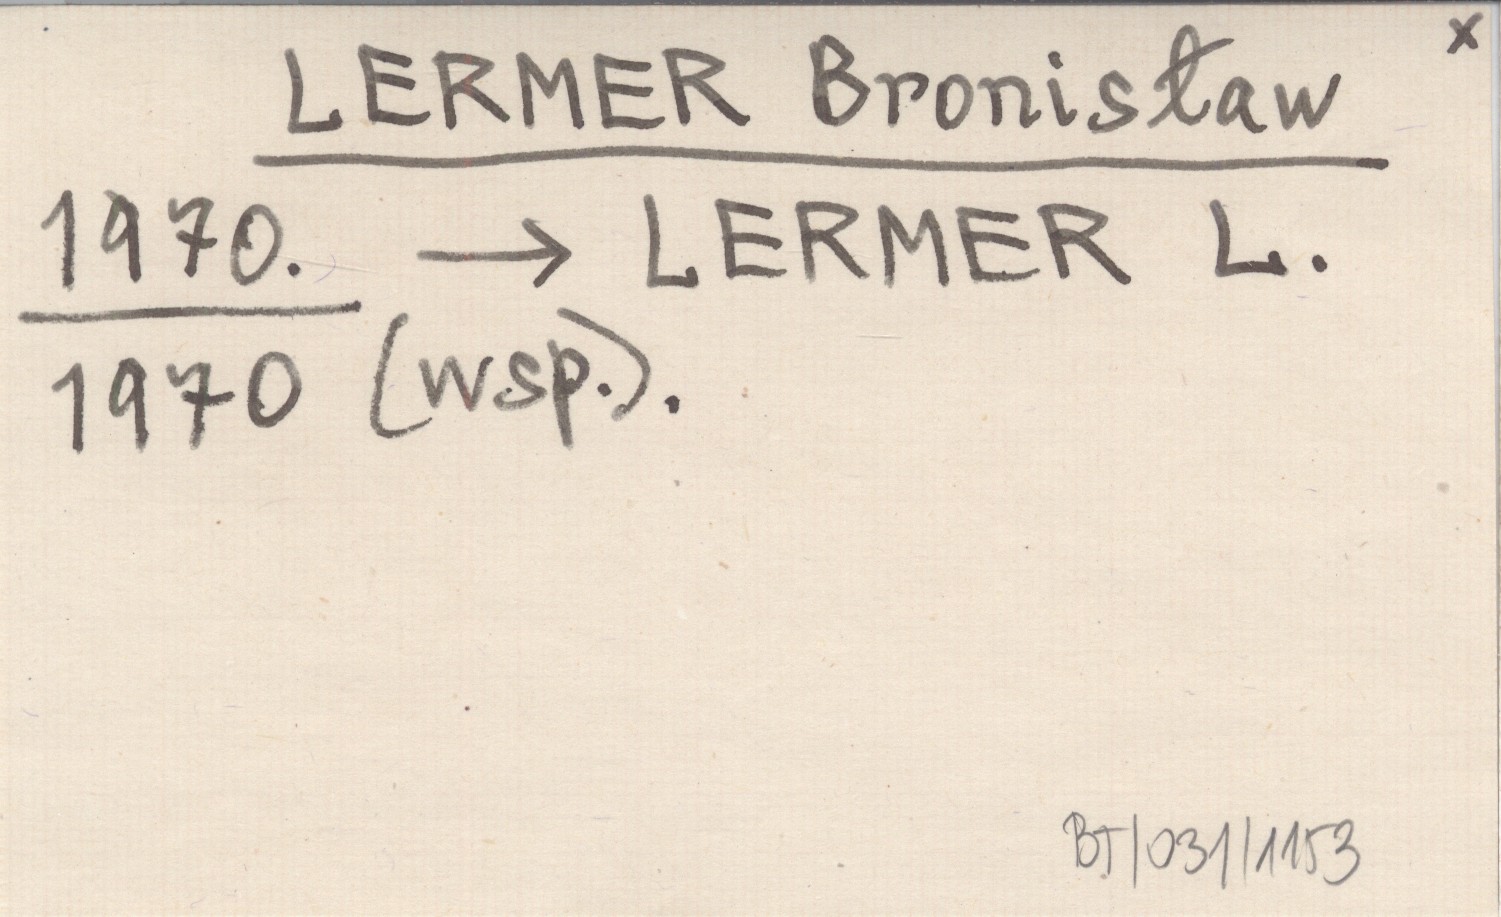 x
LERMER Bronisław
1970. → LERMER L.
1970 (wsp.).
BT/031/1153